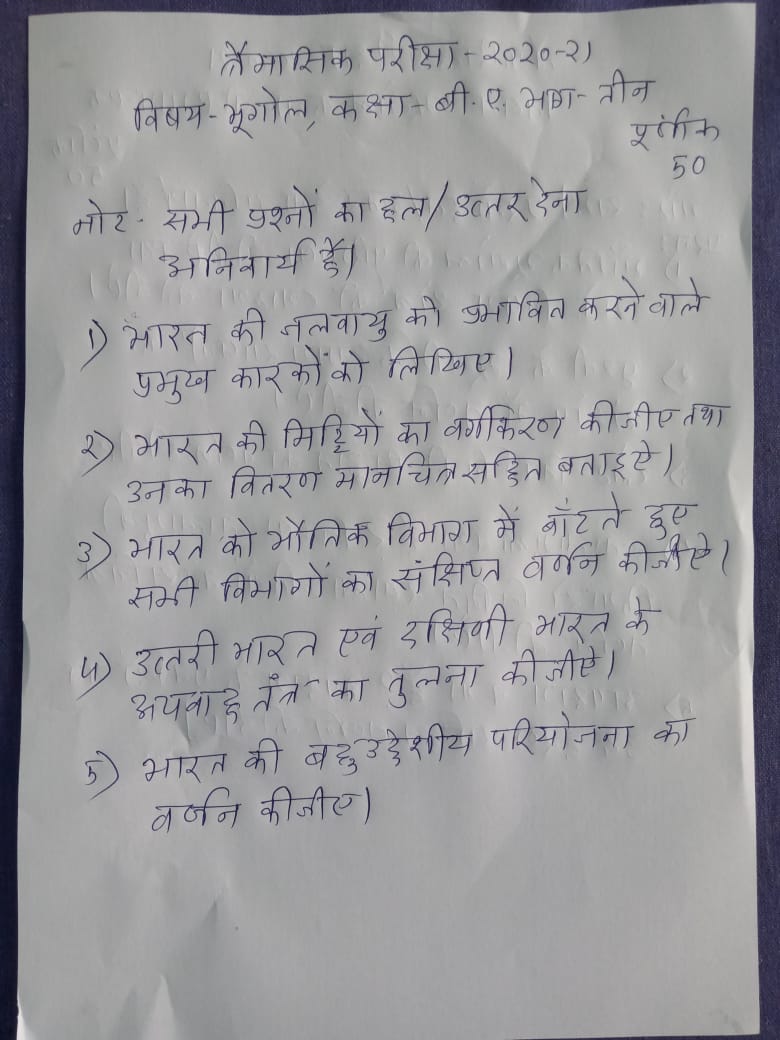 त्रैमासिक परीक्षा - २०२०-२१
विषय - भूगोल, कक्षा - बी. ए. भाग - तीन
पूर्णांक
50
नोट - सभी प्रश्नों का हल/उत्तर देना
अनिवार्य है।
1) भारत की जलवायु को प्रभावित करने वाले
प्रमुख कारकों को लिखिए।
२) भारत की मिट्टियों का वर्गीकरण कीजीए तथा
उनका वितरण मानचित्र सहित बताइऐ।
3) भारत को भौतिक विभाग में बाँटते हुए
सभी विभागों का संक्षिप्त वर्णन कीजीऐ।
4) उत्तरी भारत एवं दक्षिणी भारत के
अपवाह तंत्र का तुलना कीजीऐ।
5) भारत की बहुउद्देशीय परियोजना का
वर्णन कीजीए।